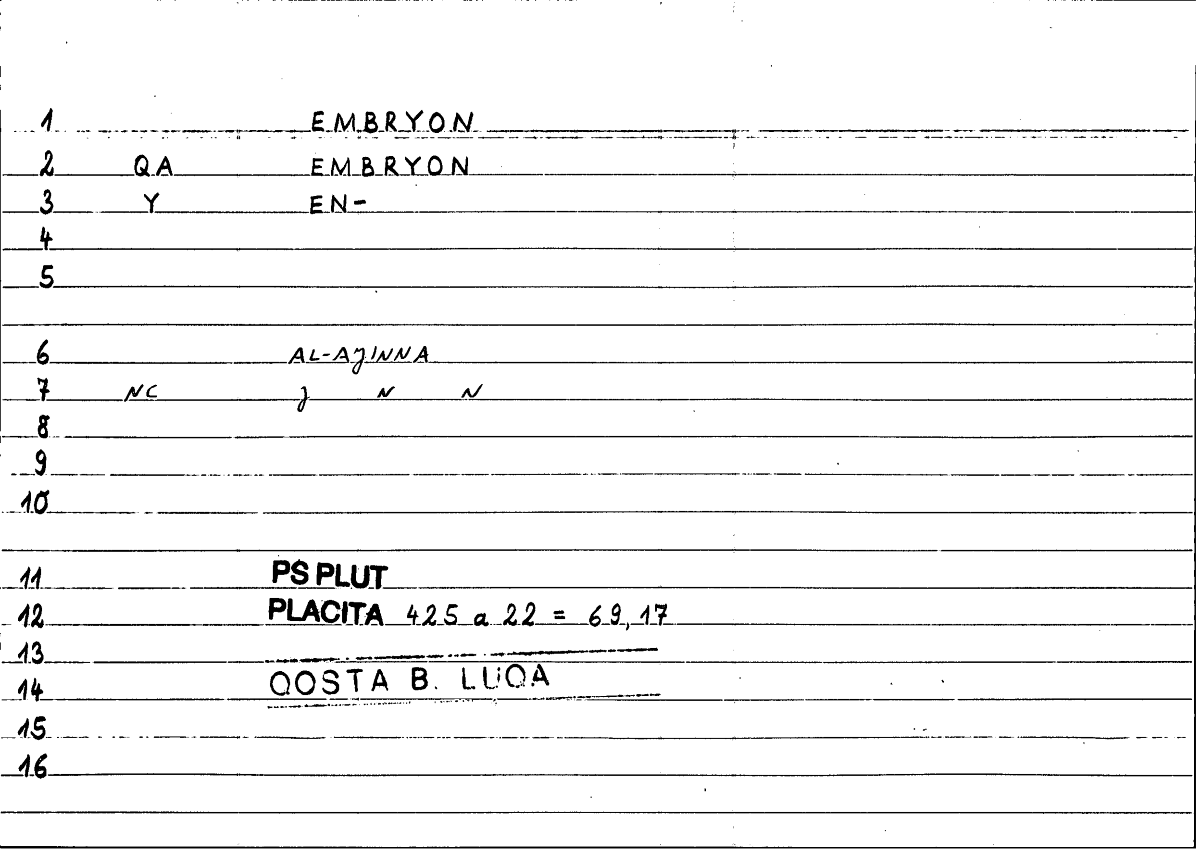 1 EMBRYON
2 QA EMBRYON
3 Y EN-
4
5
6 AL-AJINNA
7 NC J N N
8
9
10
11 PS PLUT
12 PLACITA 425 a 22 = 69,17
13
14 QOSTA B. LUQA
15
16